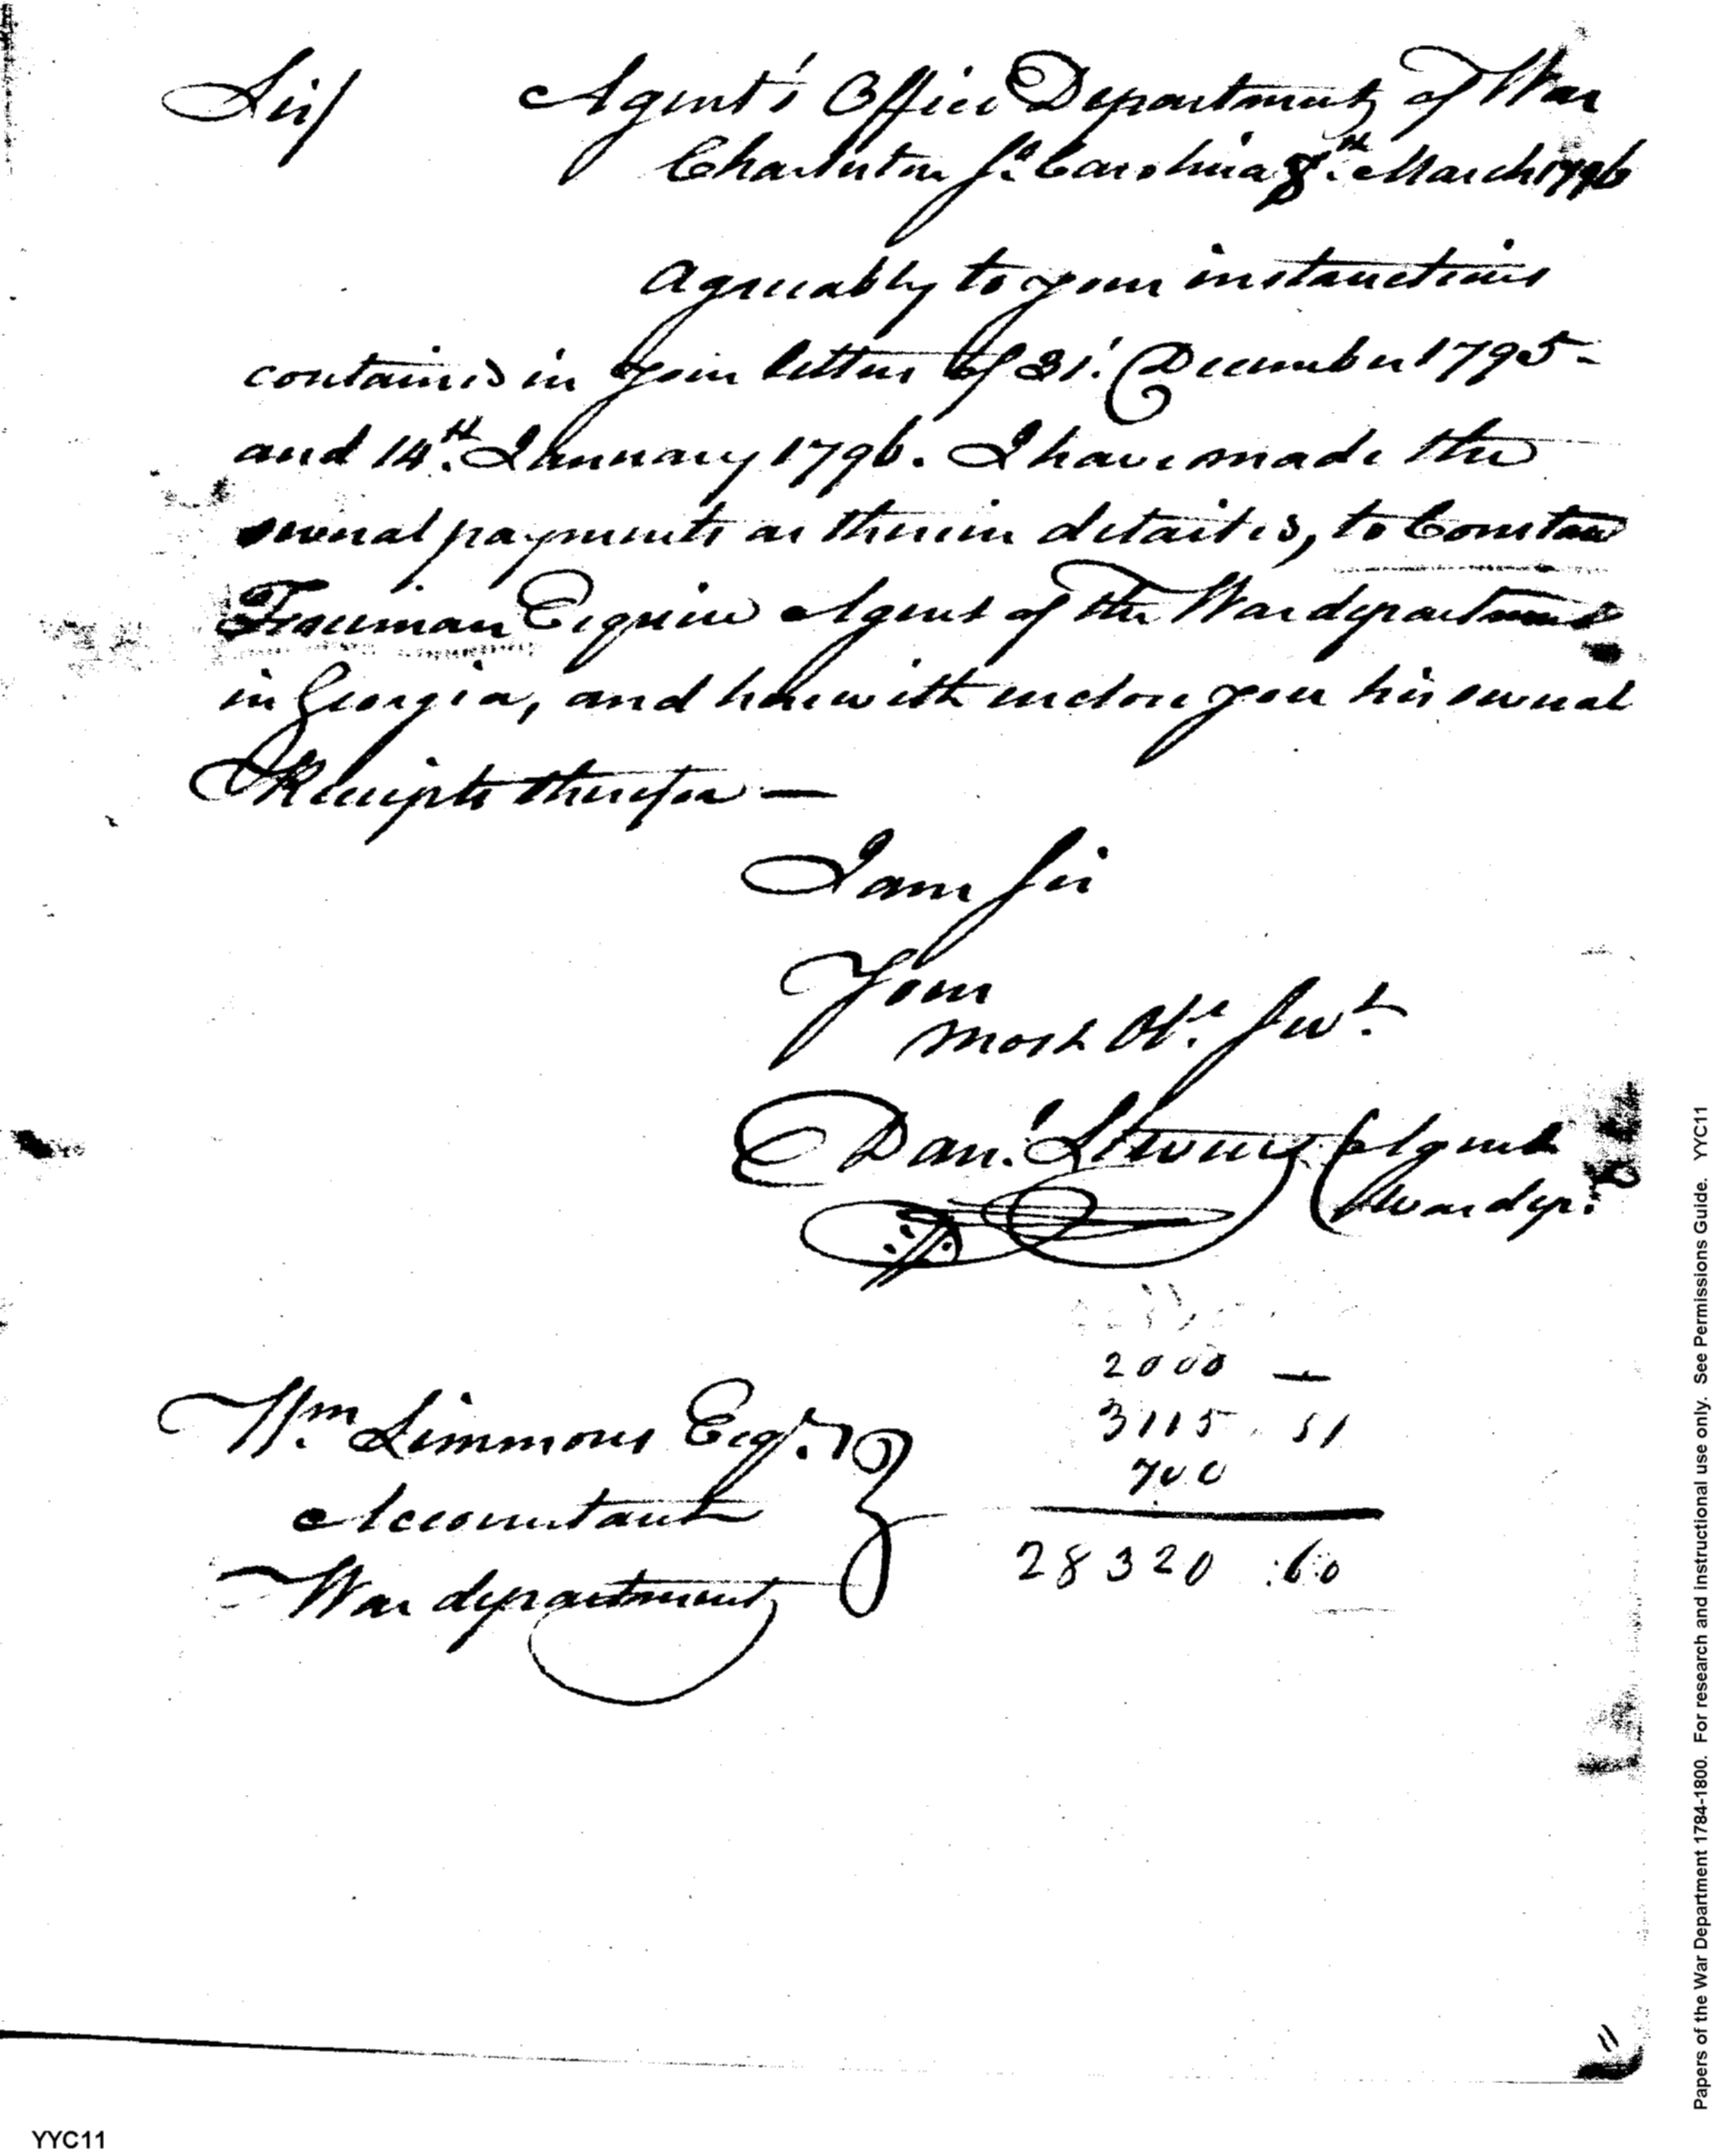 Sir/ Agent's Office Department of War
Charleston So. Carolina 8th. March 1796
Agreeably to your instructions
contained in your letters of 31'. December 1795-
and 14th. January 1796. I have made the
several payments as therein detailed, to Constan
Freeman Esquire Agent of the War department
in Georgia, and herewith enclose you his several
Receipts therefor —
I am Sir
Your
most Obt. Servt.
Danl. Stevens Agent
War dept.
2000 —
3115. 51
700
28320 .60
Wm Simmons Esqr.
Accountant
War department
11
YYC11
Papers of the War Department 1784-1800. For research and instructional use only. See Permissions Guide. YYC11